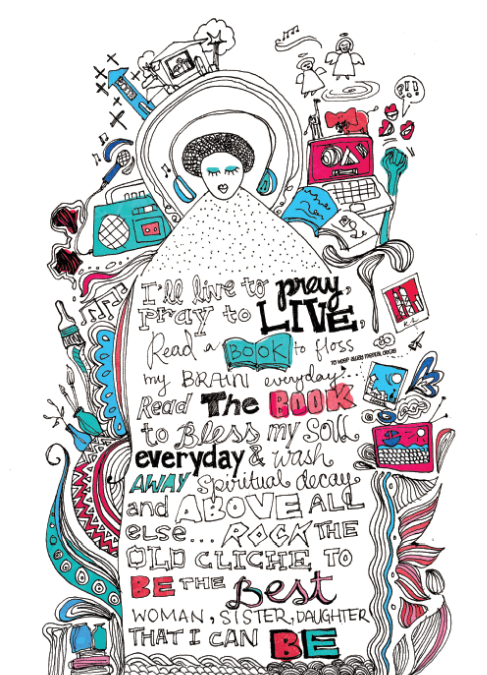 ?!!
I'll live to pray,
pray to LIVE,
Read a BOOK to floss
TO KEEP AWAY MENTAL DECAY
my BRAIN everyday.
Read The BOOK
to Bless my Soul
everyday & wash
AWAY spiritual decay
and ABOVE ALL
else... ROCK THE
OLD CLICHE TO
BE THE Best
WOMAN, SISTER, DAUGHTER
THAT I CAN BE